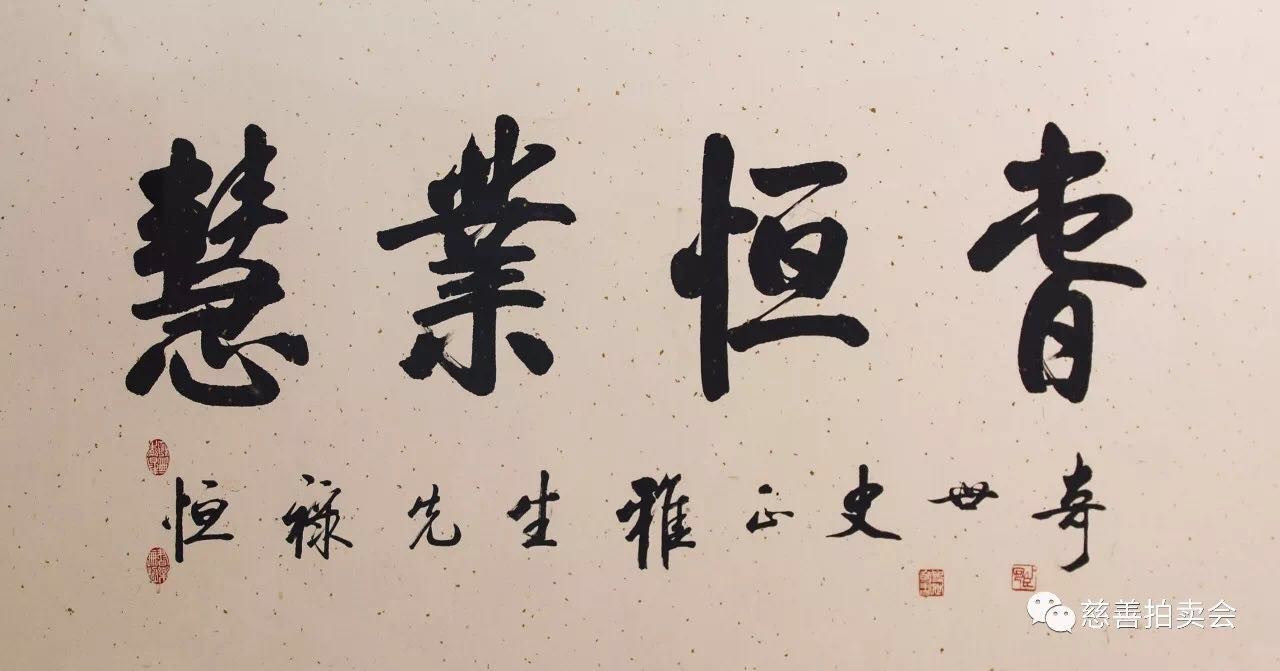 慧業恒春
恒祿先生雅正史世奇
慈善拍卖会